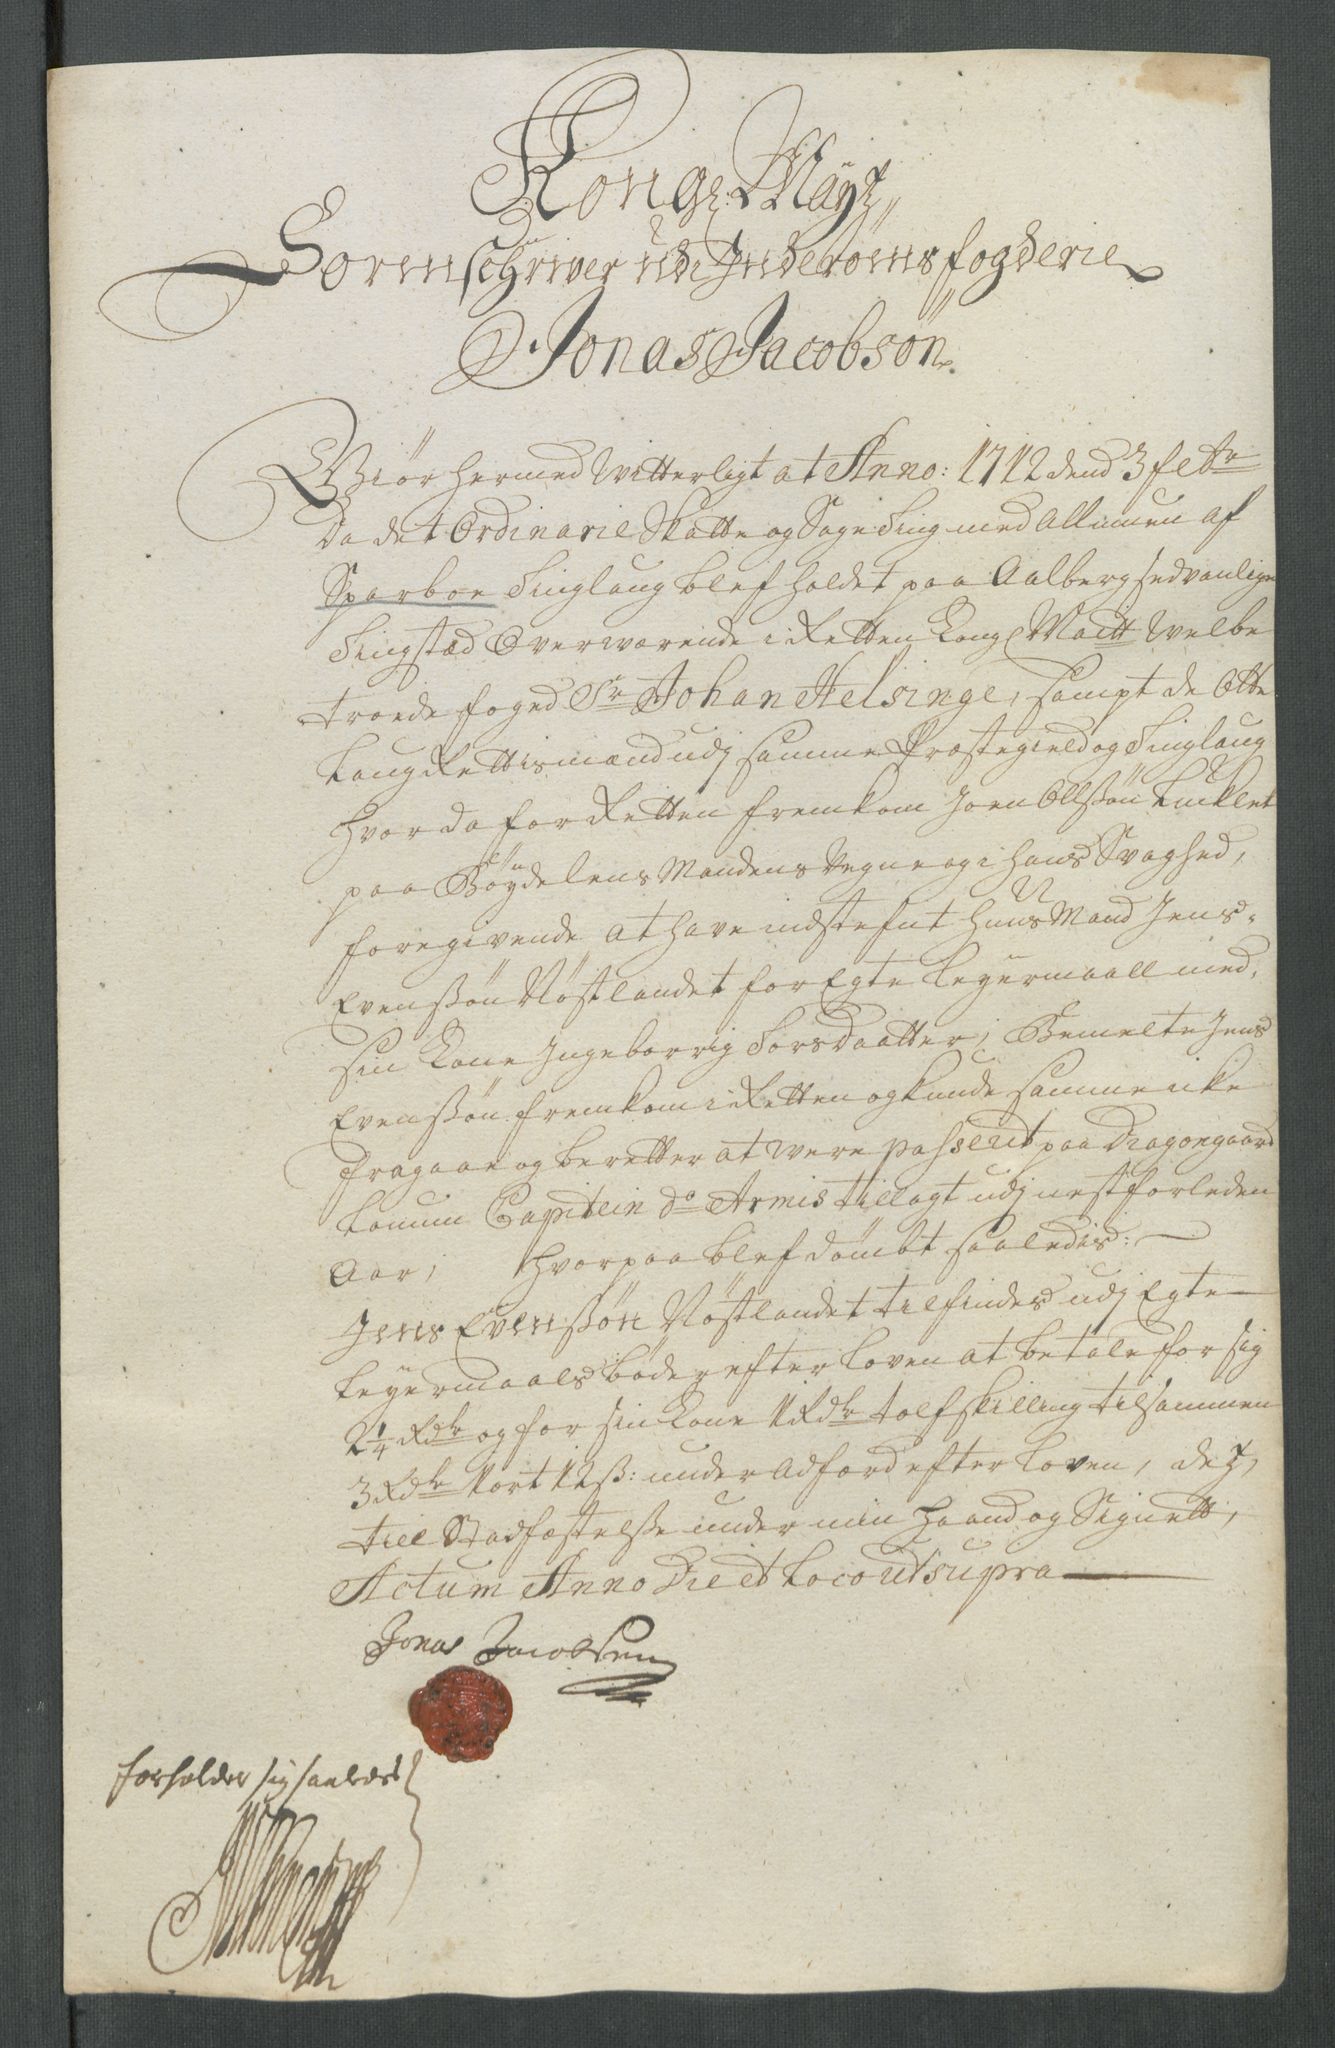 Kong: Mayt:
Sorenschriver udi Inderöens fogderie
Jonas Jacobsön.
Giör hermed Witterligt at Anno: 1712 dend 3 febr
Da det Ordinarie Skatte og Sage Ting med Allmuen af
Sparboe Tinglaug blef holdet paa Aalberg sedvanlige
Tingsted Overværende i Retten Kongl Maitt Welbe
troede foged Sr Johan Helsinge, sampt de Otte
Laug Rettismænd udj samme Præstegield og Tinglaug
hvor da for Retten fremkom Joen Ollssön
paa Böygdelens Mandens Vegne og i hans Svaghed,
foregivende at have indstefnt huus Mand Jens
Evenssön Nöstlandet for Egte Leyermaall med
sin Kone Ingeborrig Torsdaatter; Bemelte Jens
Evenssön fremkom i Retten og kunde samme icke
fragaae og beretter at were passerit paa Dragongaard
Capitein de Armis tillagt udj nestforleden
Aar; hvorpaa blef dömbt saaledis:
Jens Evenssön Nöstlandet tilfindes udj Egte
Leyermaals böder efter loven at betale for sig
2 1/4 Rdr og for sin Kone 1 Rdr tolf skilling tilsammen
3 Rdr 1 ort 12 ss: under Adfærd efter Loven, dez,
till Stadfæstelsse under min haand og Signett,
Actum Anno Die et Loco Ut supra
Jonas Jacobsen
forholder sig saaledes